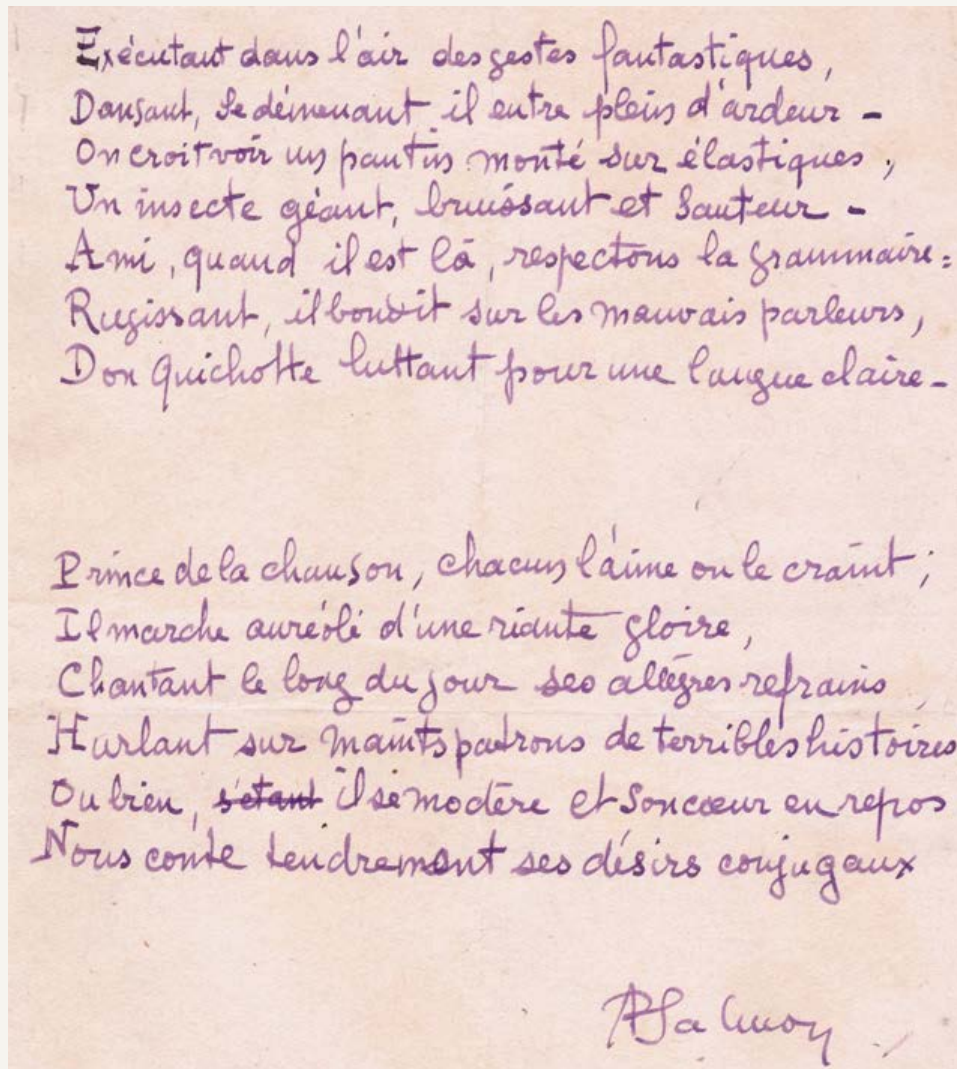 Exécutant dans l'air des gestes fantastiques,
Dansant, se démenant il entre plein d'ardeur -
On croit voir un pantin monté sur élastiques,
Un insecte géant, bruissant et sauteur -
Ami, quand il est là, respectons la grammaire:
Rugissant, il bondit sur les mauvais parleurs,
Don Quichotte luttant pour une langue claire -
Prince de la chanson, chacun l'aime ou le craint;
Il marche auréolé d'une riante gloire,
Chantant le long du jour ses allègres refrains
Hurlant sur maints patrons de terribles histoires
Ou bien, s'étant il se modère et son cœur en repos
Nous conte tendrement ses désirs conjugaux